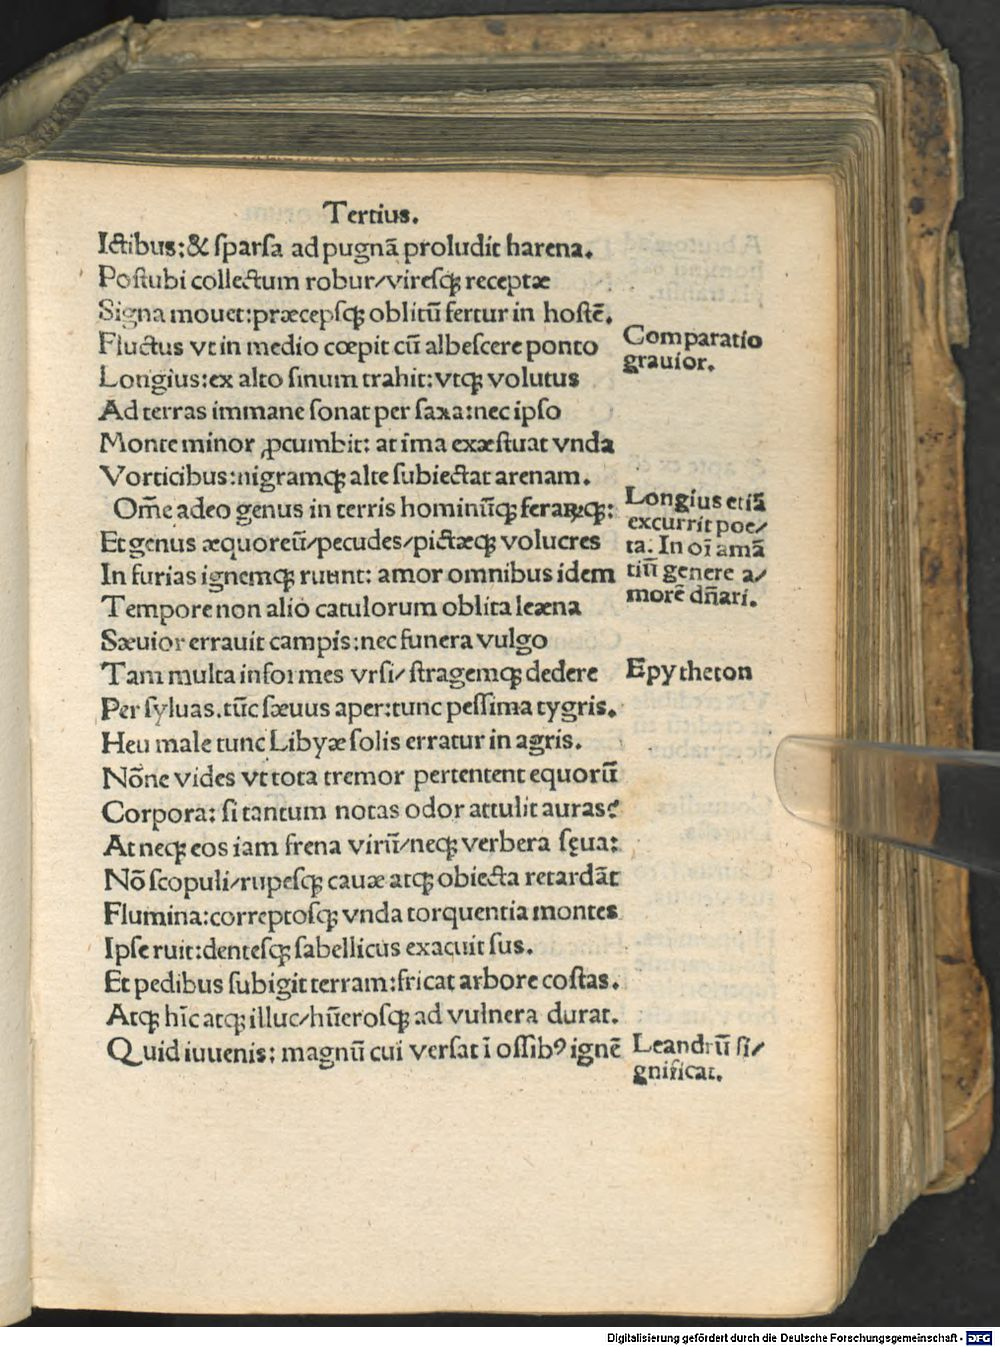 Tertius.
Ictibus: & sparsa ad pugnã proludit harena.
Postubi collectum robur/viresqꝫ receptæ
Signa mouet: præcepsqꝫ oblitũ fertur in hostẽ.
Fluctus vt in medio cœpit cũ albescere ponto
Comparatio
grauior.
Longius: ex alto sinum trahit: vtqꝫ volutus
Ad terras immane sonat per saxa: nec ipso
Monte minor ꝓcumbit: at ima exæstuat vnda
Vorticibus: nigramqꝫ alte subiectat arenam.
Om̃e adeo genus in terris hominũqꝫ feraꝝqꝫ:
Longius etiã
excurrit poe/
ta. In oĩ amã
tiũ genere a/
morẽ dñari.
Et genus æquoreũ/pecudes/pictæqꝫ volucres
In furias ignemqꝫ ruunt: amor omnibus idem
Tempore non alio catulorum oblita leæna
Sæuior errauit campis: nec funera vulgo
Tam multa informes vrsi/ stragemqꝫ dedere
Epytheton
Per syluas. tũc sæuus aper: tunc pessima tygris.
Heu male tunc Libyæ solis erratur in agris.
Nõne vides vt tota tremor pertentent equorũ
Corpora: si tantum notas odor attulit auras?
At neqꝫ eos iam frena virũ/neqꝫ verbera sęua:
Nõ scopuli/rupesqꝫ cauæ atqꝫ obiecta retardãt
Flumina: correptosqꝫ vnda torquentia montes
Ipse ruit: dentesqꝫ sabellicus exacuit sus.
Et pedibus subigit terram: fricat arbore costas.
Atqꝫ hĩc atqꝫ illuc/hũerosqꝫ ad vulnera durat.
Quid iuuenis: magnũ cui versat ĩ ossibꝰ ignẽ
Leandrũ si/
gnificat.
Digitalisierung gefördert durch die Deutsche Forschungsgemeinschaft - DFG